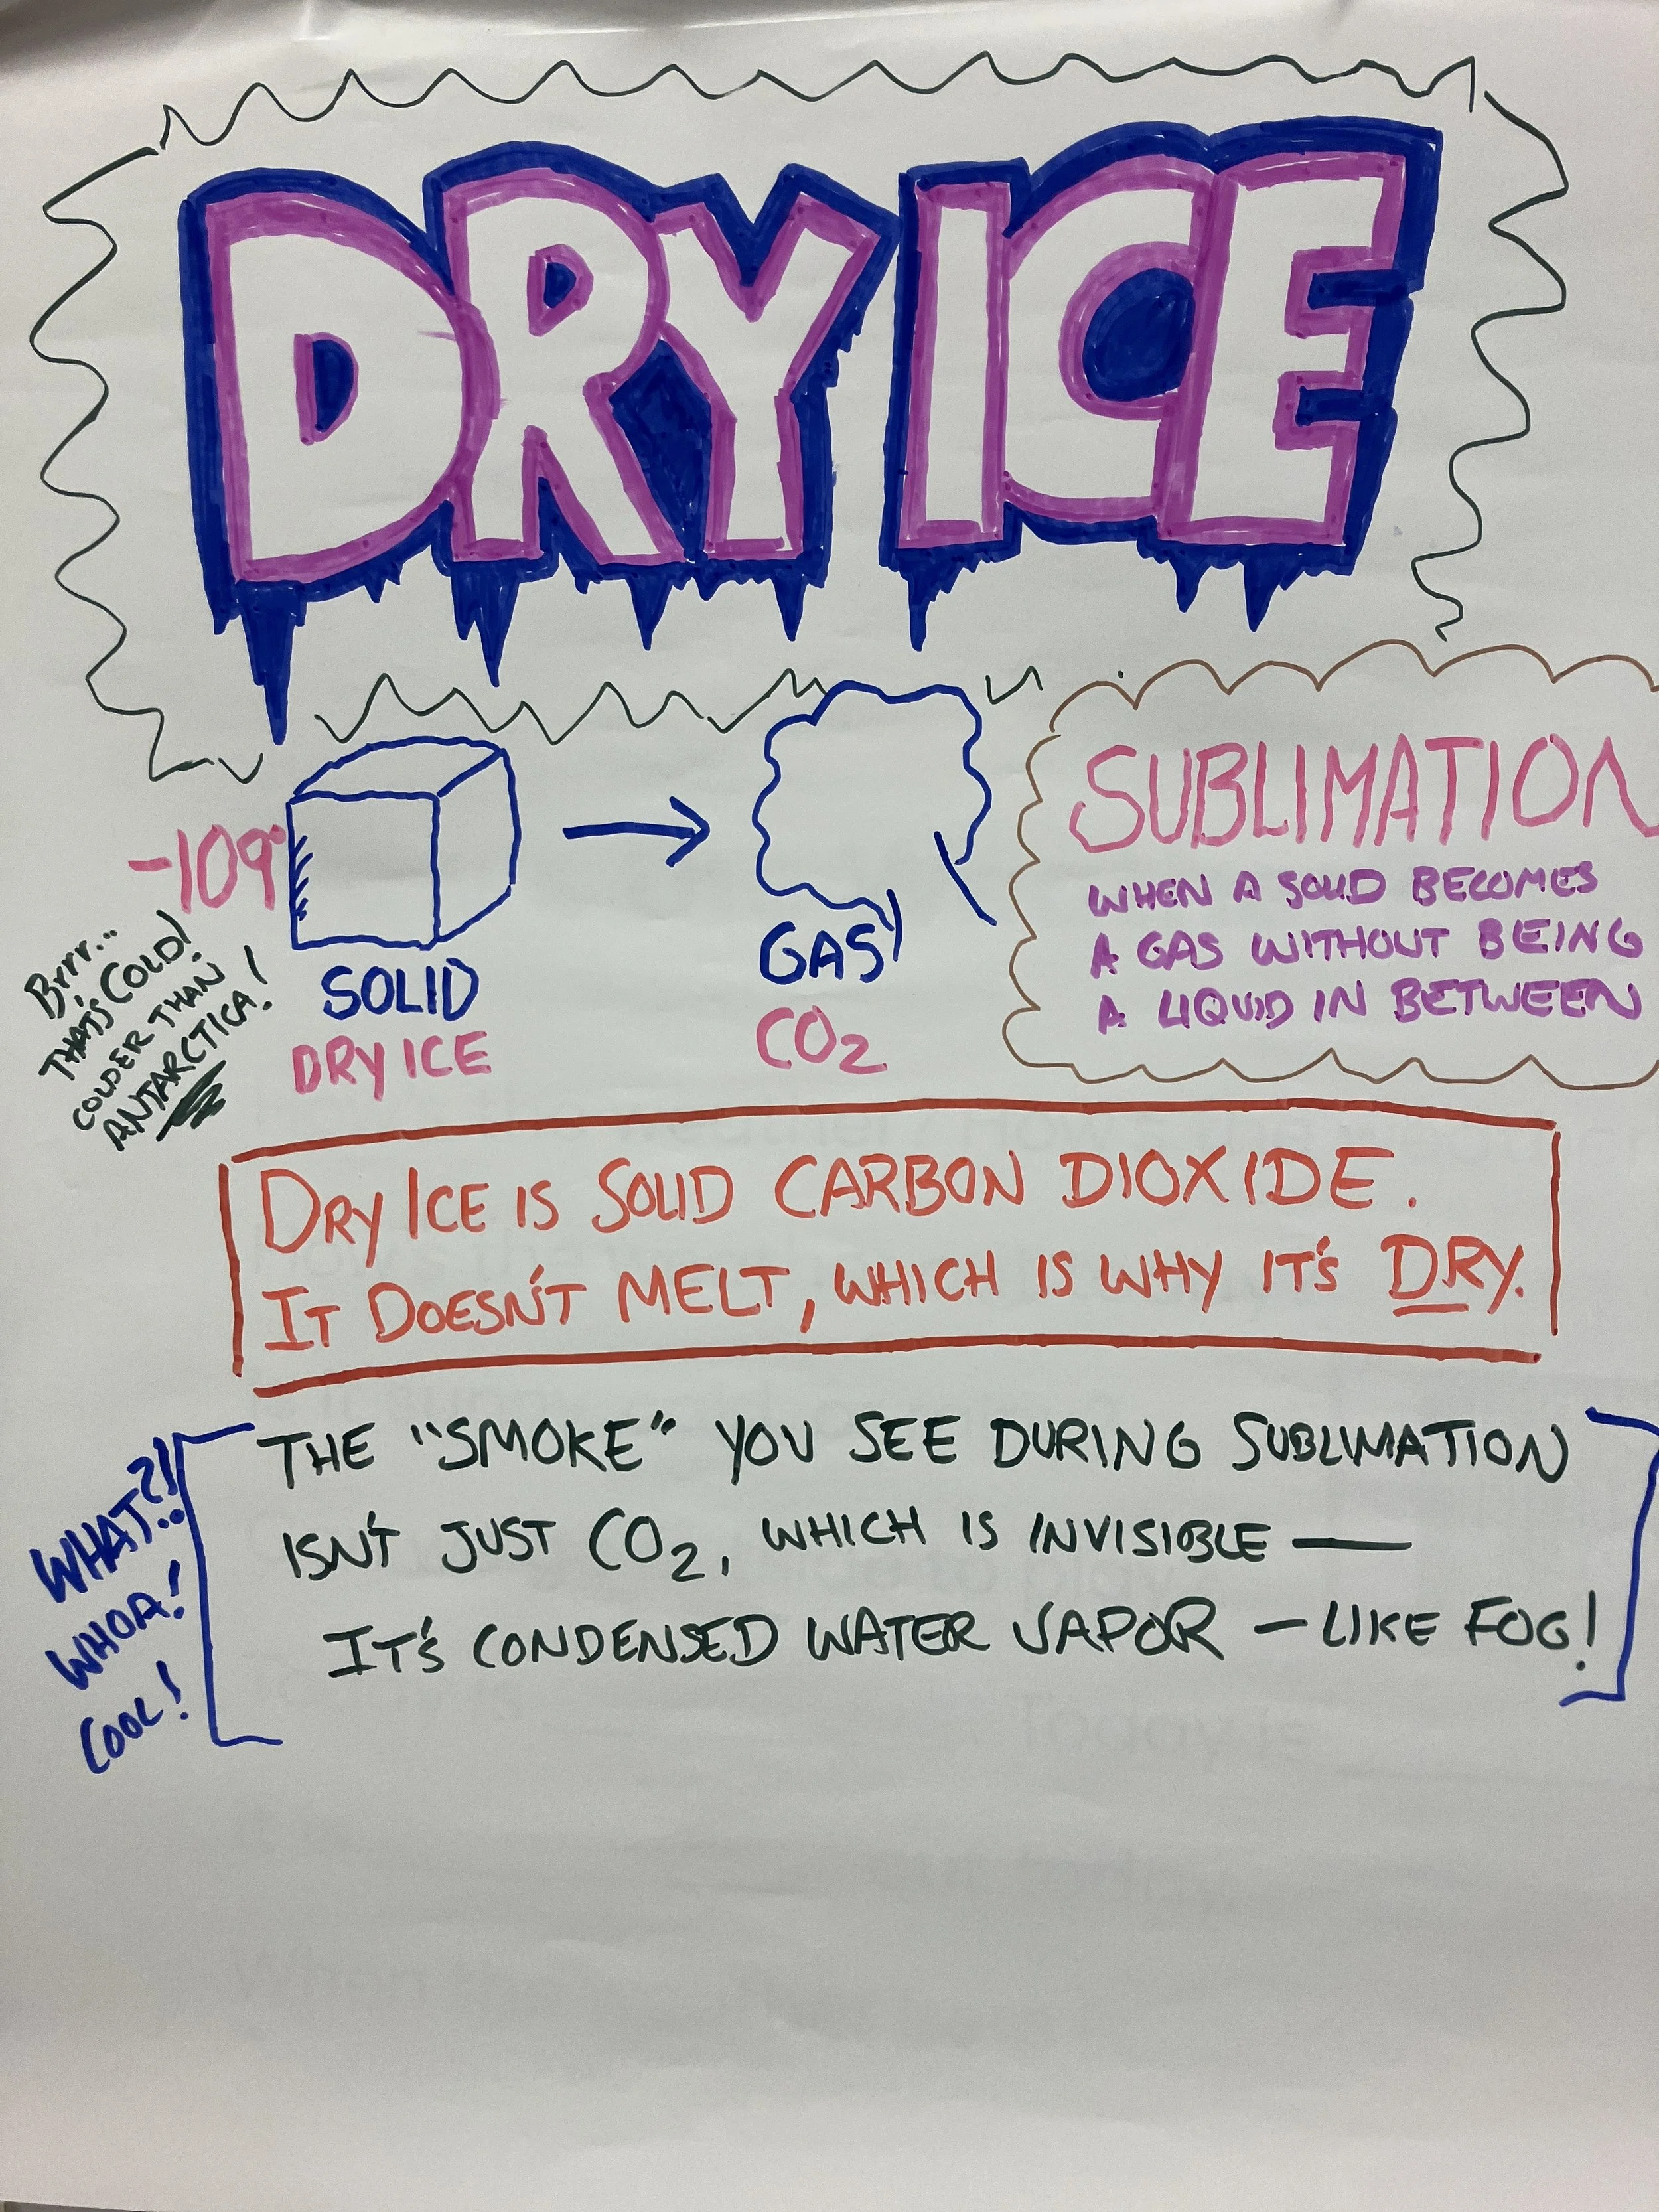 DRY ICE
-109°
Brrr...
THAT'S COLD!
COLDER THAN
ANTARCTICA!
SOLID
DRY ICE
GAS
CO2
SUBLIMATION
WHEN A SOLID BECOMES
A GAS WITHOUT BEING
A LIQUID IN BETWEEN
DRY ICE IS SOLID CARBON DIOXIDE.
IT DOESN'T MELT, WHICH IS WHY IT'S DRY.
WHAT?!
WHOA!
COOL!
THE "SMOKE" YOU SEE DURING SUBLIMATION
ISN'T JUST CO2, WHICH IS INVISIBLE —
IT'S CONDENSED WATER VAPOR - LIKE FOG!
Today is